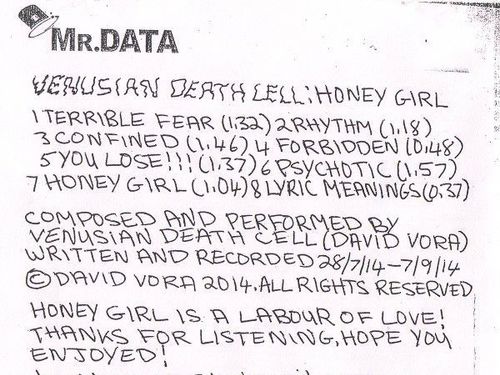 MR.DATA
VENUSIAN DEATH CELL: HONEY GIRL
1 TERRIBLE FEAR (1.32) 2 RHYTHM (1.18)
3 CONFINED (1.46) 4 FORBIDDEN (0.48)
5 YOU LOSE!!! (1.37) 6 PSYCHOTIC (1.57)
7 HONEY GIRL (1.04) 8 LYRIC MEANINGS (0.37)
COMPOSED AND PERFORMED BY
VENUSIAN DEATH CELL (DAVID VORA)
WRITTEN AND RECORDED 28/7/14-7/9/14
© DAVID VORA 2014. ALL RIGHTS RESERVED
HONEY GIRL IS A LABOUR OF LOVE!
THANKS FOR LISTENING, HOPE YOU
ENJOYED!